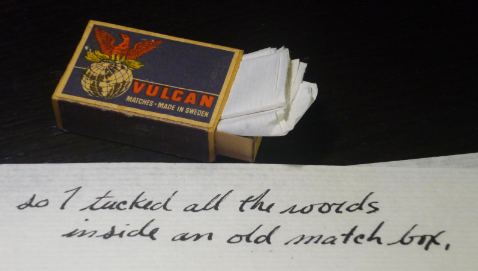 VULCAN
MATCHES • MADE IN SWEDEN
so I tucked all the words
inside an old match box.